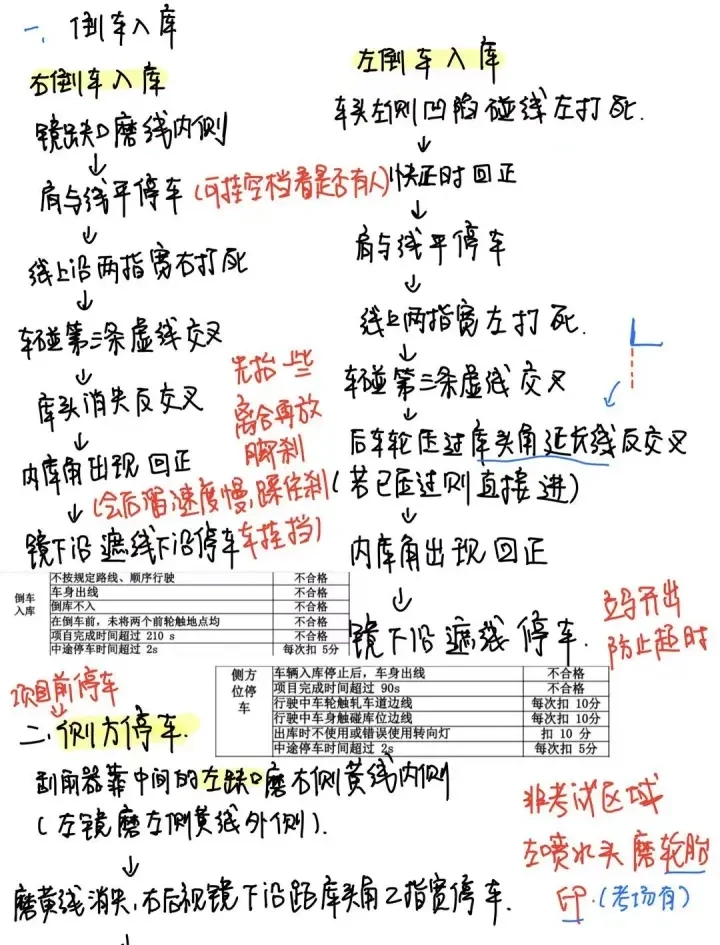 一、倒车入库
右倒车入库
镜缺口磨线内侧
↓
肩与线平停车(可挂空档看是否有人)
↓
线上沿两指宽右打死
↓
车碰第三条虚线交叉
↓
库头消失反交叉
↓
内库角出现回正
↓
镜下沿遮线下沿停车
先抬一些
离合再放
脚刹
(会后溜,速度慢,踩住刹
车挂挡)
左倒车入库
车头左侧凹陷碰线左打死.
↓
快正时回正
↓
肩与线平停车
↓
线上两指宽左打死.
↓
车碰第三条虚线交叉
↓
后车轮压过库头角延长线反交叉
(若已压过则直接进)
↓
内库角出现回正
↓
镜下沿遮线停车.
立马开出
防止超时
倒车入库
不按规定路线、顺序行驶 不合格
车身出线 不合格
倒库不入 不合格
在倒车前,未将两个前轮触地点均 不合格
项目完成时间超过 210 s 不合格
中途停车时间超过 2s 每次扣 5分
侧方位停车
车辆入库停止后,车身出线 不合格
项目完成时间超过 90s 不合格
行驶中车轮触轧车道边线 每次扣 10分
行驶中车身触碰库位边线 每次扣 10分
出库时不使用或错误使用转向灯 扣 10 分
中途停车时间超过 2s 每次扣 5分
项目前停车
二、侧方停车.
刮雨器靠中间的左缺口磨右侧黄线内侧
(左镜磨左侧黄线外侧).
↓
磨黄线消失,右后视镜下沿距库头角2指宽停车.
↓
非考试区域
左喷水头磨轮胎
印.(考场有)